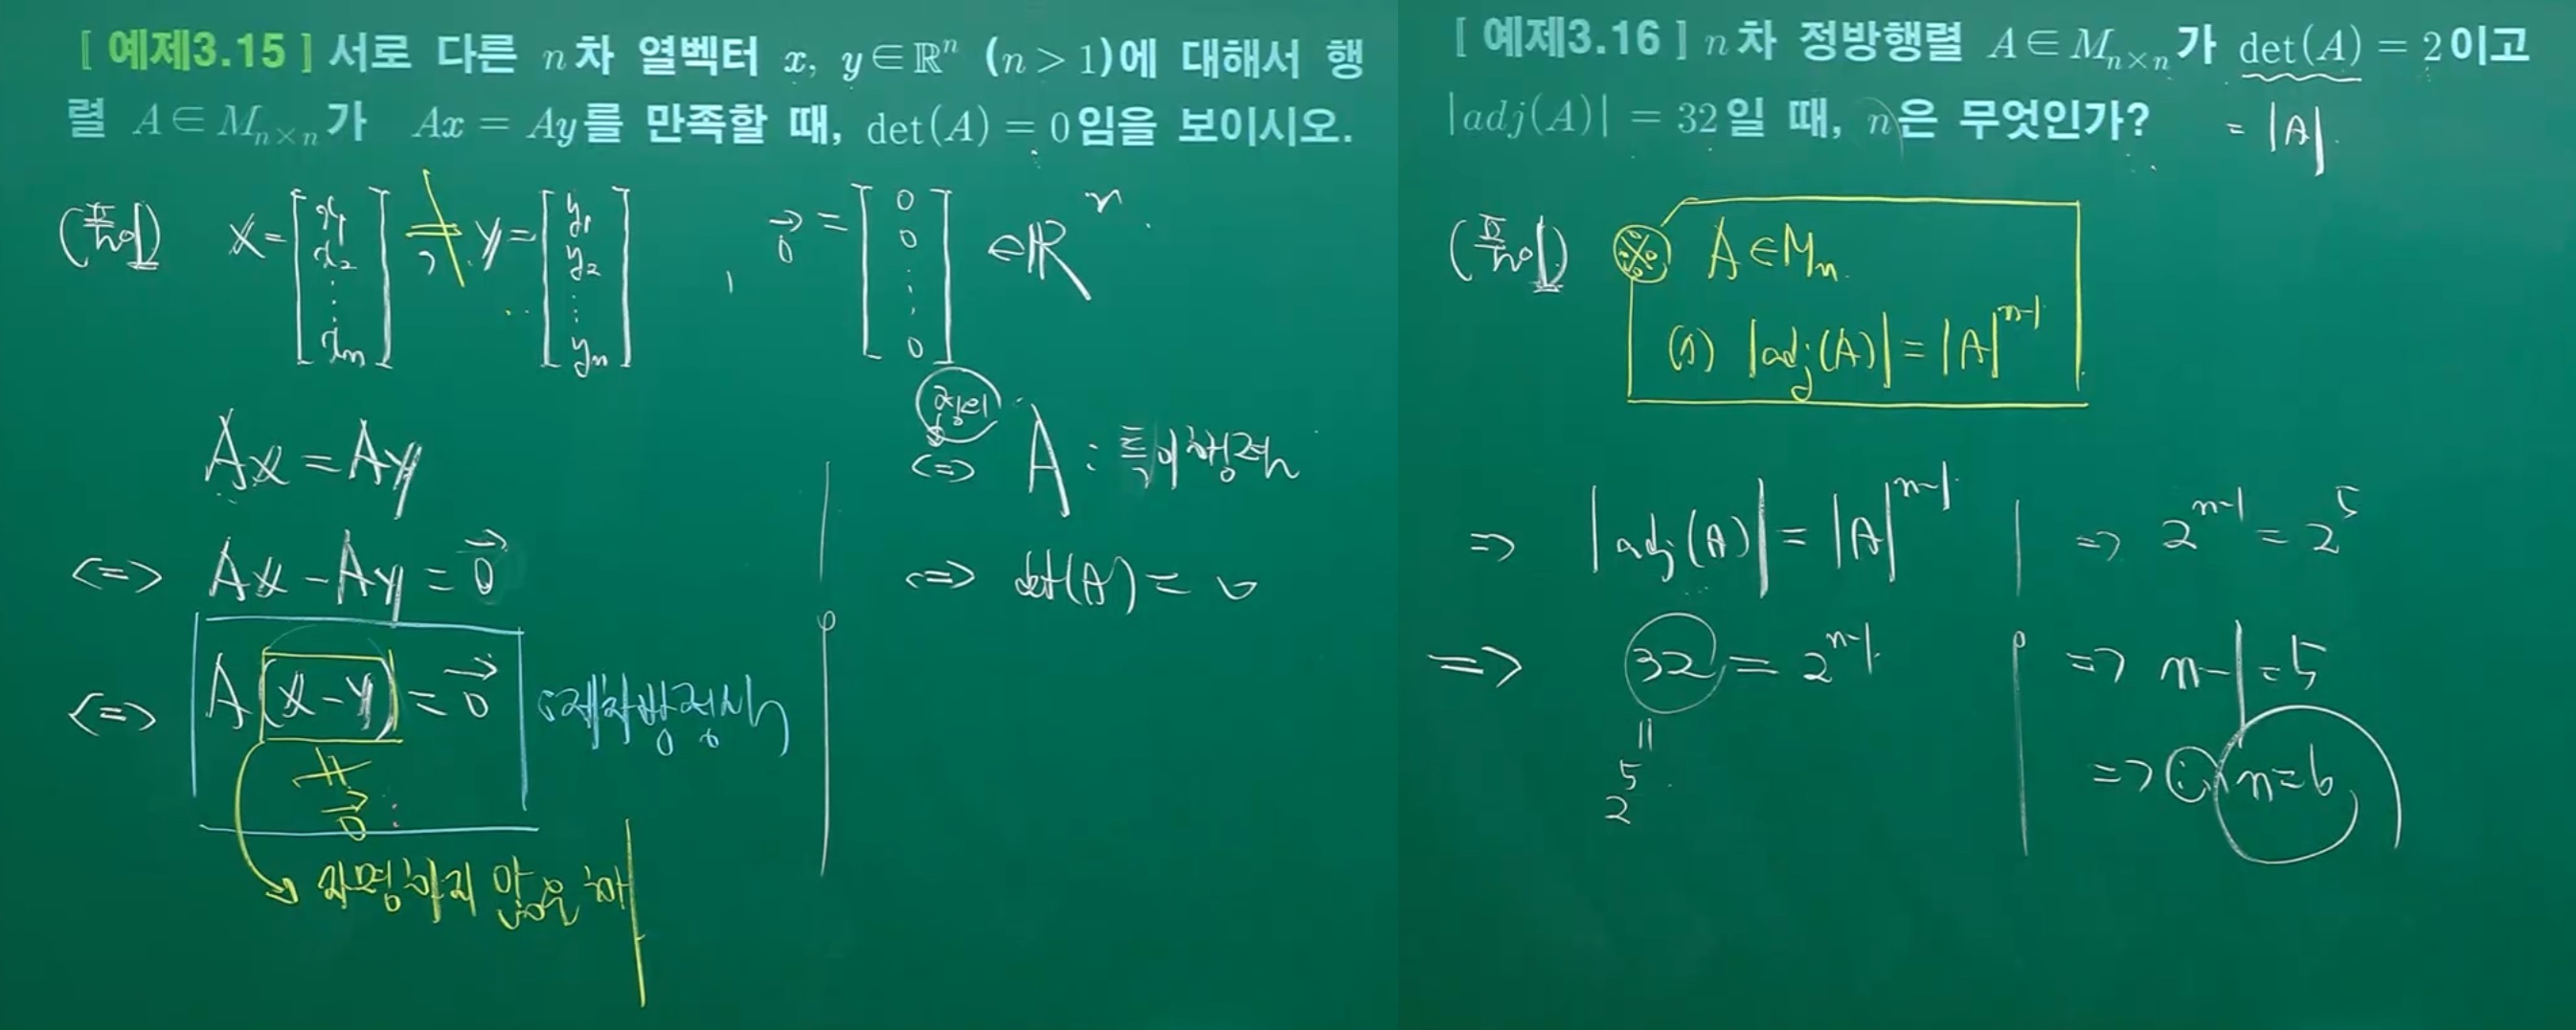 [ 예제3.15 ] 서로 다른 n차 열벡터 x, y∈ℝⁿ (n > 1)에 대해서 행
렬 A∈Mₙ×ₙ가 Ax = Ay를 만족할 때, det(A) = 0임을 보이시오.
(풀이) x = [x₁ x₂ ⋮ xₙ] ≠ y = [y₁ y₂ ⋮ yₙ] , 0⃗ = [0 0 ⋮ 0] ∈ℝⁿ
Ax = Ay
<=> Ax - Ay = 0⃗
<=> A(x-y) = 0⃗ 연립방정식
≠
0⃗
자명하지 않은 해
정리
<=> A : 특이행렬
<=> det(A) = 0
[ 예제3.16 ] n차 정방행렬 A∈Mₙ×ₙ가 det(A) = 2이고
= |A|
|adj(A)| = 32일 때, n은 무엇인가?
(풀이) ※ A∈Mₙ
(1) |adj(A)| = |A|ⁿ⁻¹
=> |adj(A)| = |A|ⁿ⁻¹
=> 32 = 2ⁿ⁻¹
॥
2⁵
=> 2ⁿ⁻¹ = 2⁵
=> n-1 = 5
=> ∴ n=6